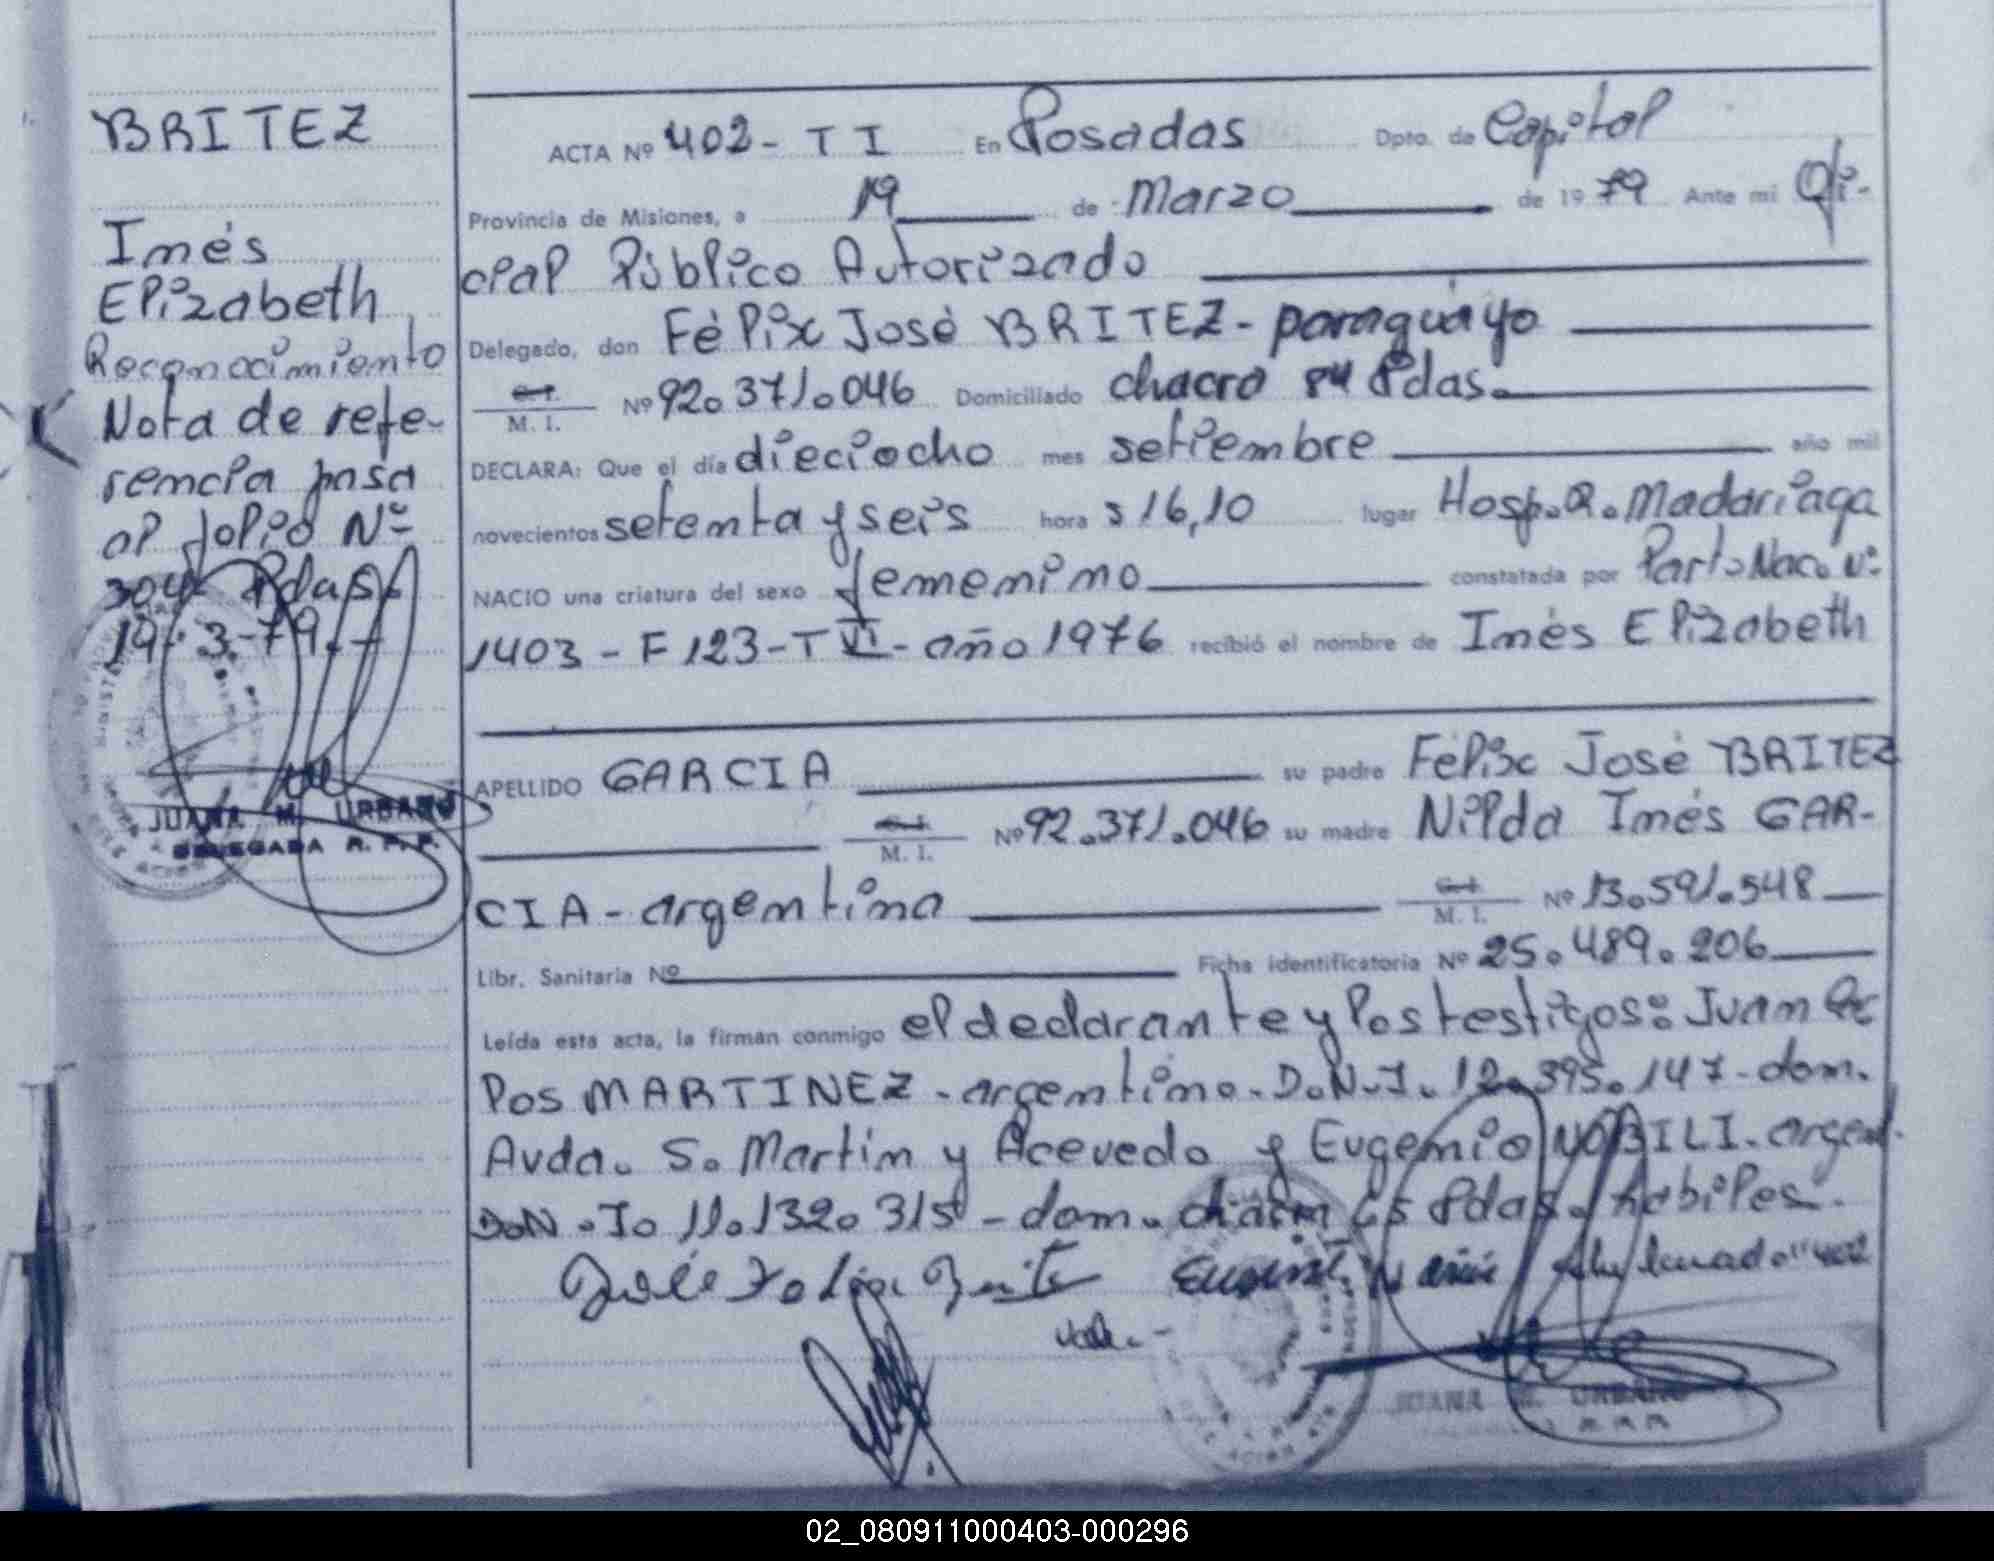 BRITEZ
Inés
Elizabeth
Reconocimiento
Nota de refe-
rencia pasa
al folio Nº
304 Pdas.
19-3-79.-
JUANA M. URBANO
DELEGADA R. P. P.
ACTA Nº 402- T I En Posadas Dpto. de Capital
Provincia de Misiones, a 19 de Marzo de 1979 Ante mi Ofi-
cial Público Autorizado
Delegado, don Félix José BRITEZ- paraguayo
M. I. Nº 92.371.046 Domiciliado chacra 84 Pdas.
DECLARA: Que el día dieciocho mes setiembre año mil
novecientos setenta y seis hora s 16,10 lugar Hosp. R. Madariaga
NACIO una criatura del sexo femenino constatada por Part. Nac. Nº
1403 - F 123 - T VI - año 1976 recibió el nombre de Inés Elizabeth
APELLIDO GARCIA su padre Félix José BRITEZ
M. I. Nº 92.371.046 su madre Nilda Inés GAR-
CIA - argentina M. I. Nº 13.591.548
Libr. Sanitaria Nº Ficha identificatoria Nº 25.489.206
Leída esta acta, la firman conmigo el declarante y los testigos: Juan Car
los MARTINEZ - argentino - D.N.I. 12.395.147 - dom.
Avda. S. Martín y Acevedo y Eugenio NOBILI - argent.
D.N.I. 11.132.315 - dom. chacra 65 Pdas. hábiles.
"402
vale.-
JUANA M. URBANO
02_080911000403-000296